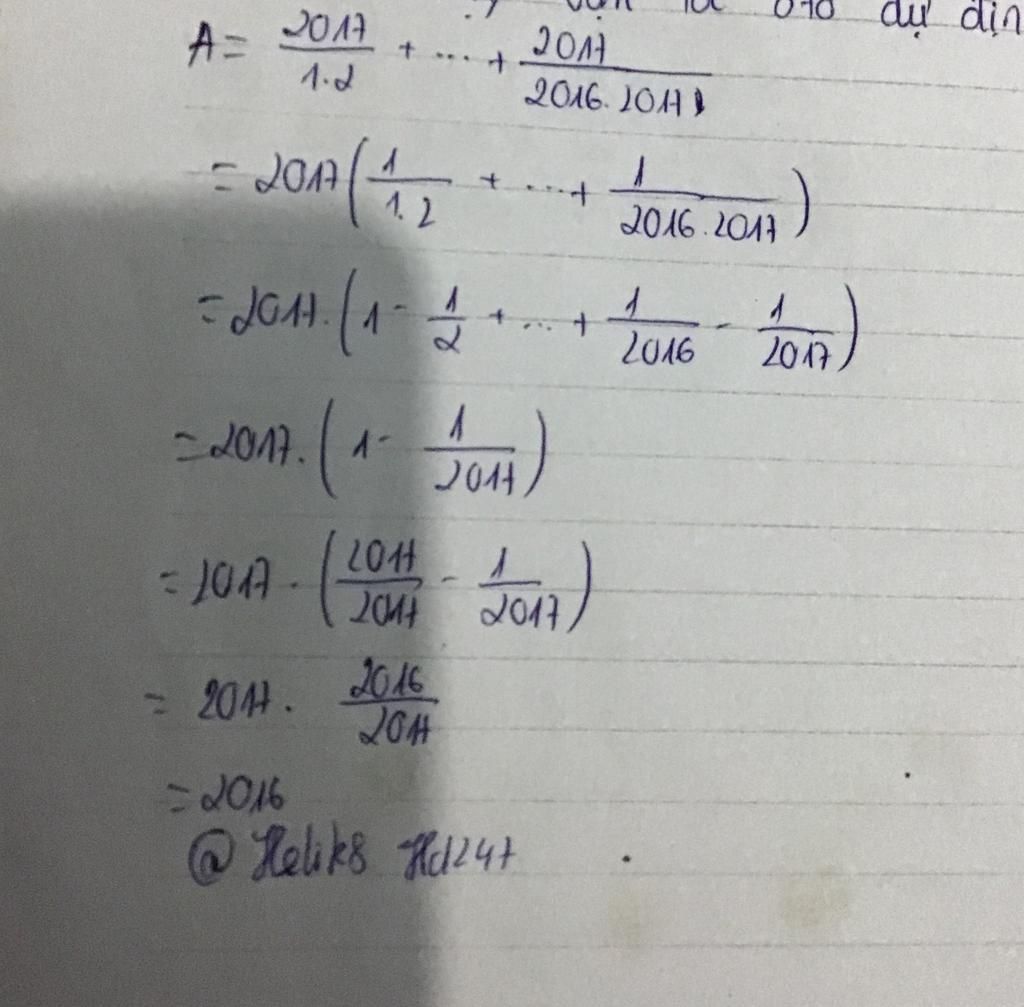 vận tốc ôtô dự địn
A = 2017/1.2 + ... + 2017/2016.2017
= 2017 (1/1.2 + ... + 1/2016.2017)
= 2017. (1 - 1/2 + ... + 1/2016 - 1/2017)
= 2017. (1 - 1/2017)
= 2017 . (2017/2017 - 1/2017)
= 2017 . 2016/2017
= 2016
@ Helik8 Hd247